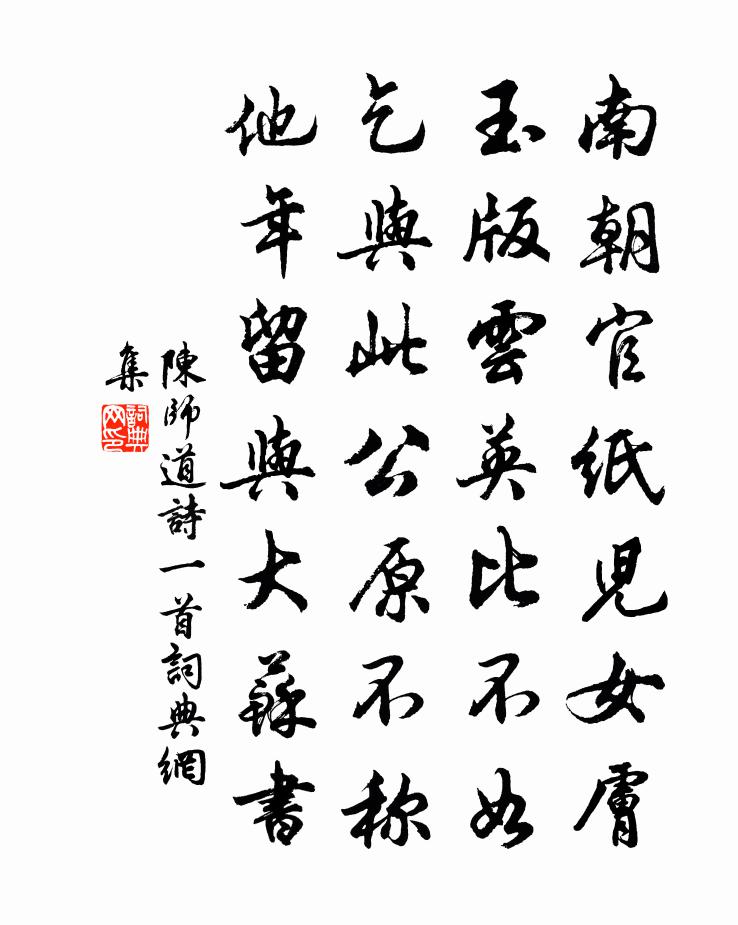 南朝官紙兒女膚
玉版雲英比不如
乞與此公原不称
他年留與大蘇書
陳師道詩一首詞典網
集
詞典网印